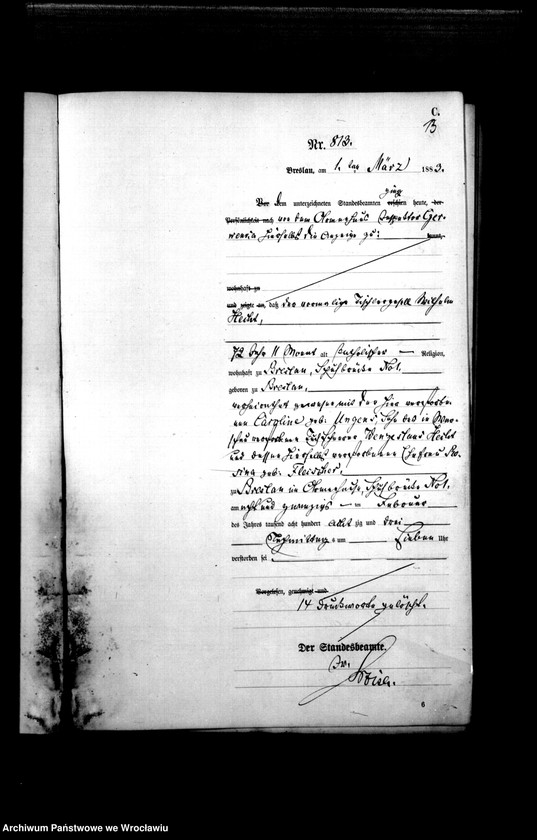 C.
13
Nr. 813.
Breslau, am 1. ten März 1883.
ging
Vor dem unterzeichneten Standesbeamten erschien heute, der
Persönlichkeit nach von dem Armenhaus Inspektor Ger-
die Anzeige zu: kannt,
wohnhaft zu
und zeigte an, daß der vormalige Tischlergesell Wilhelm
Heiht,
72 Jahr 11 Monat alt katholischer Religion,
wohnhaft zu Breslau, No 1.
geboren zu Breslau,
verheirathet gewesen mit der hier verstorbe-
nen Caroline geb. Ungend, Sohn des in
verstorbenen Tuchscheerer Wenzeslaus Heiht
und dessen hierselbst verstorbenen Ehefrau Ro-
sina geb. Fleischer,
zu Breslau im Armenhause, No 1.
am acht und zwanzigsten im Februar
des Jahres tausend acht hundert achtzig und drei
Nachmittags um sieben Uhr
verstorben sei.
Vorgelesen, genehmigt und
14 Druckworte gelöscht.
Der Standesbeamte.
In V.
6
Archiwum Państwowe we Wrocławiu